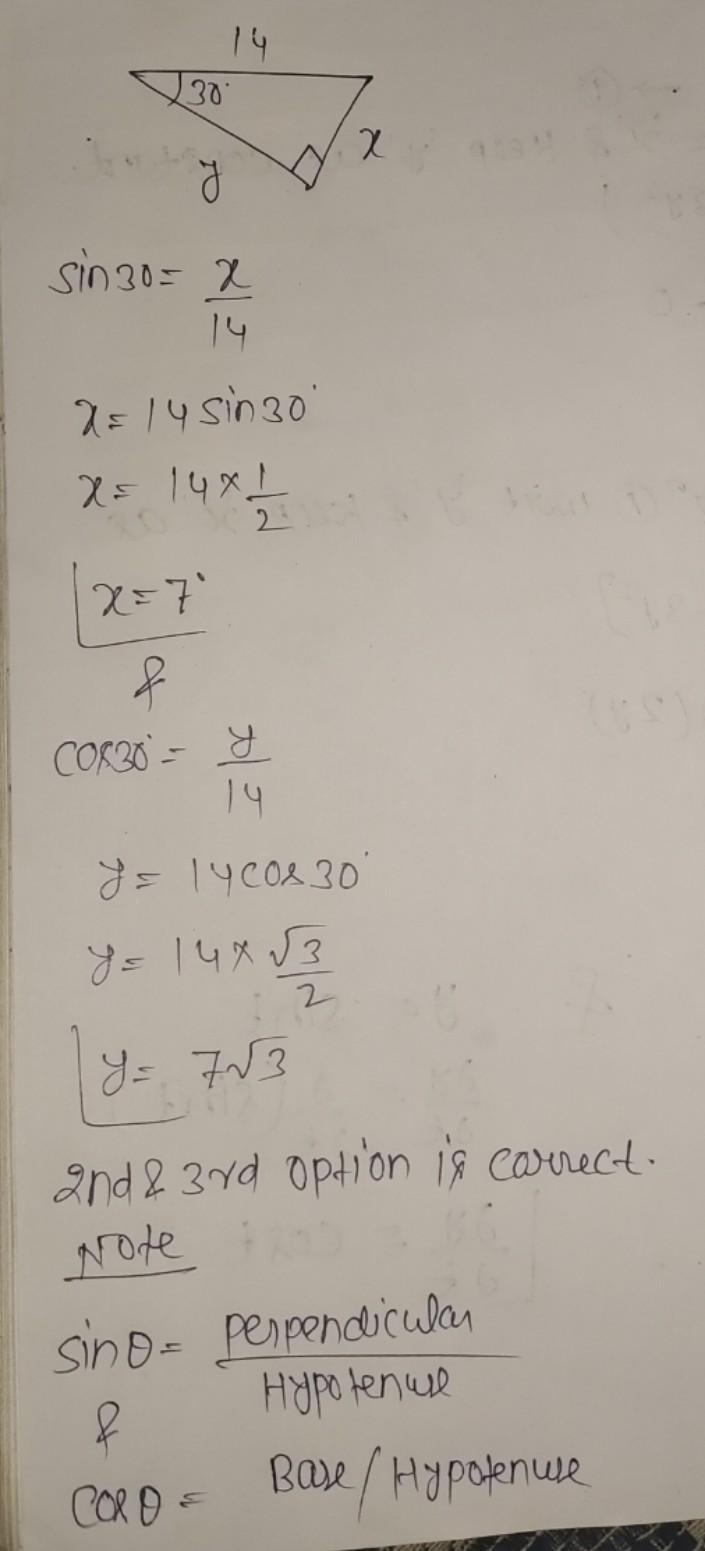 14
30°
x
y
sin30 = x/14
x = 14 sin30°
x = 14 × 1/2
x = 7°
&
cos30° = y/14
y = 14 cos 30°
y = 14 × √3/2
y = 7√3
2nd & 3rd option is correct.
Note
sinθ = perpendicular/Hypotenuse
&
cosθ = Base/Hypotenuse